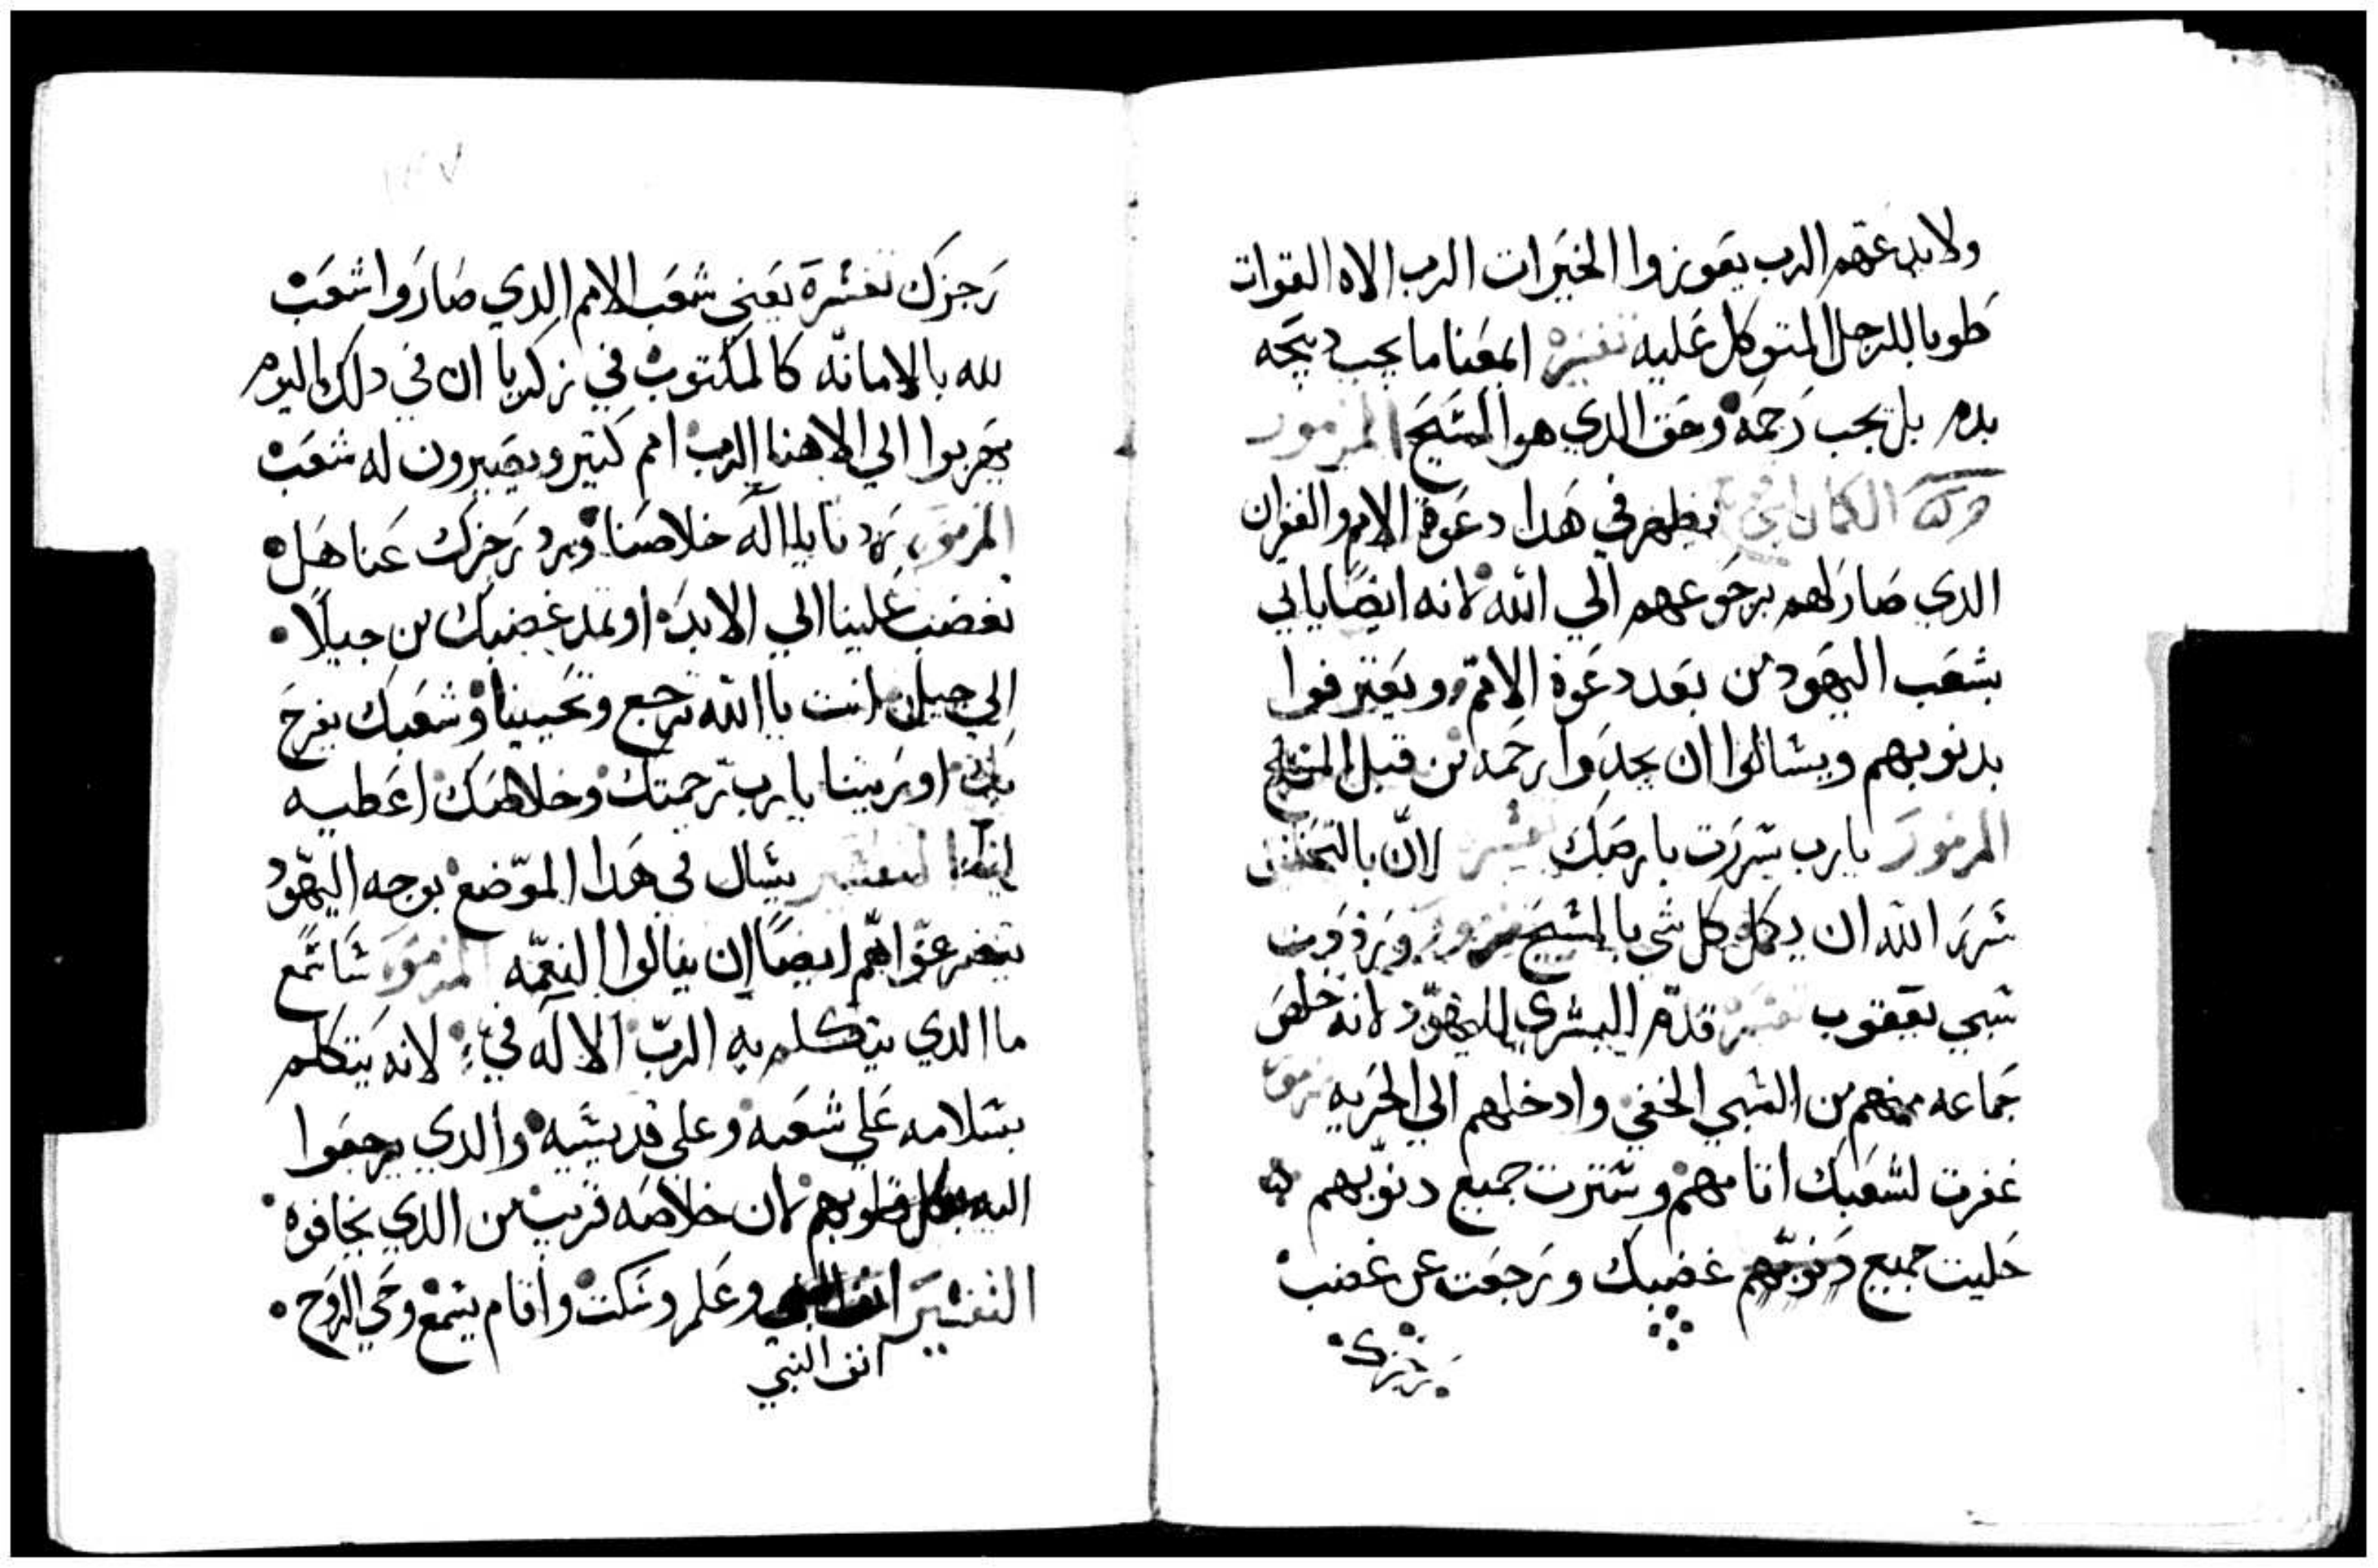 ولا يدعهم الرب يعوزوا الخيرات الرب الاه القوات
طوبا للرجل المتوكل عليه تفسيره المعنا ما يحب دبيحه
بدم بل يحب رحمه وحق الدي هو المسيح المزمور
يظهر في هدا دعوة الامم والغفران
الدي صار لهم برجوعهم الي الله لانه ايضًا ياتي
بشعب اليهود من بعد دعوة الامم ويعترفوا
بدنوبهم ويسالوا ان يجدوا رحمه من قبل المسيح
المزمور يارب سررت بارضك تفسير لان بالحقيقه
سرر الله ان يكمل كل شي بالمسيح مزمور ورددت
سبي يعقوب تفسير قدم البشري لليهود لانه خلص
جماعه منهم من السبي الخفي وادخلهم الي الحريه مزمور
غفرت لشعبك اتامهم وسترت جميع دنوبهم
حليت جميع غضبك ورجعت عن غضب
رجزك
رجزك تفسرة يعني شعب الامم الدي صاروا شعب
لله بالامانه كالمكتوب في زكريا ان في دلك اليوم
يهربوا الي الاهنا الرب امم كتير ويصيرون له شعب
المزمور ردنا يا اله خلاصنا ورد رجزك عنا هل
تغضب علينا الي الابد او تمد غضبك من جيلًا
الي جيل انت يا الله ترجع وتحيينا وشعبك يفرح
بك اورينا يارب رحمتك وخلاصك اعطيه
لنا التفسير يسال في هدا الموضع بوجه اليهود
يتضرعوا هم ايضًا ان ينالوا النعمه المزمور ساسمع
ما الدي يتكلم به الرب الاله في لانه يتكلم
بسلامه علي شعبه وعلي قديسيه والدي يرجعوا
اليه بكل قلوبهم لان خلاصه قريب من الدي يخافوه
التفسير وعلم وسكت واقام يسمع وحي الروح
انف النبي